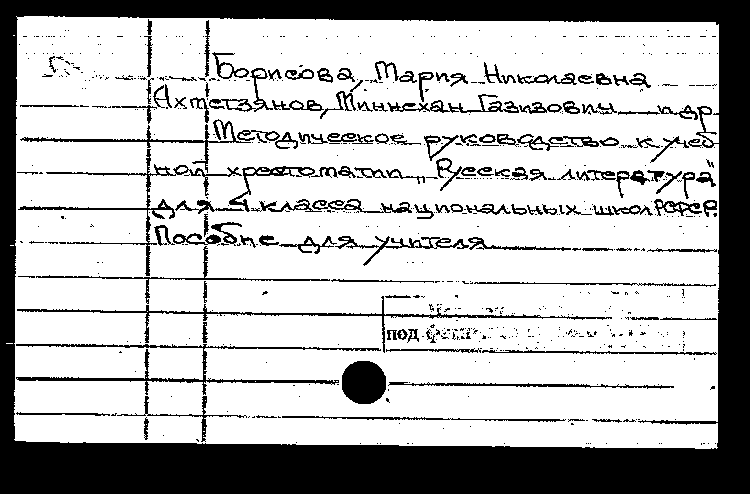 Борисова, Мария Николаевна
Ахметзянов, Миннехан Газизовны и др
Методическое руководство к учеб
ной хрестоматии „Русская литература"
для 4 класса национальных школ РСФСР.
Пособие для учителя
под